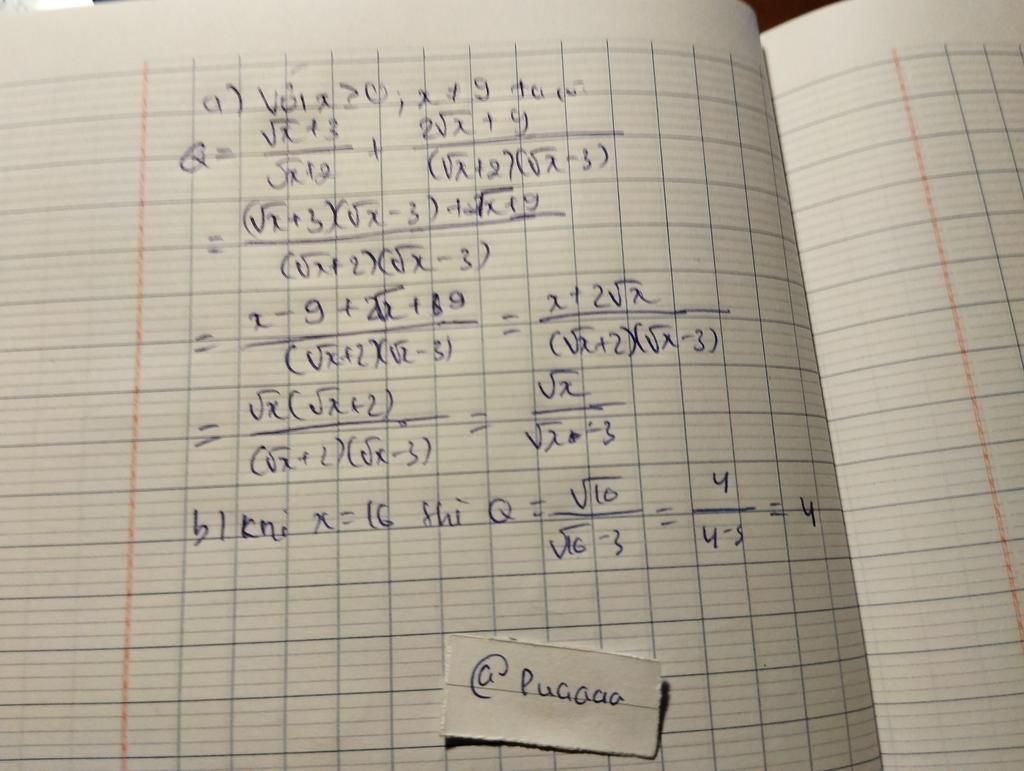 a) Với x ≥ 0; x ≠ 9 ta có
Q = (√x + 3)/(√x + 2) + (2√x + 9)/((√x + 2)(√x - 3))
= ((√x + 3)(√x - 3) + 2√x + 9)/((√x + 2)(√x - 3))
= (x - 9 + 2√x + 9)/((√x + 2)(√x - 3)) = (x + 2√x)/((√x + 2)(√x - 3))
= (√x(√x + 2))/((√x + 2)(√x - 3)) = √x/(√x - 3)
b) Khi x = 16 thì Q = √16/(√16 - 3) = 4/(4 - 3) = 4
@Puaaaa